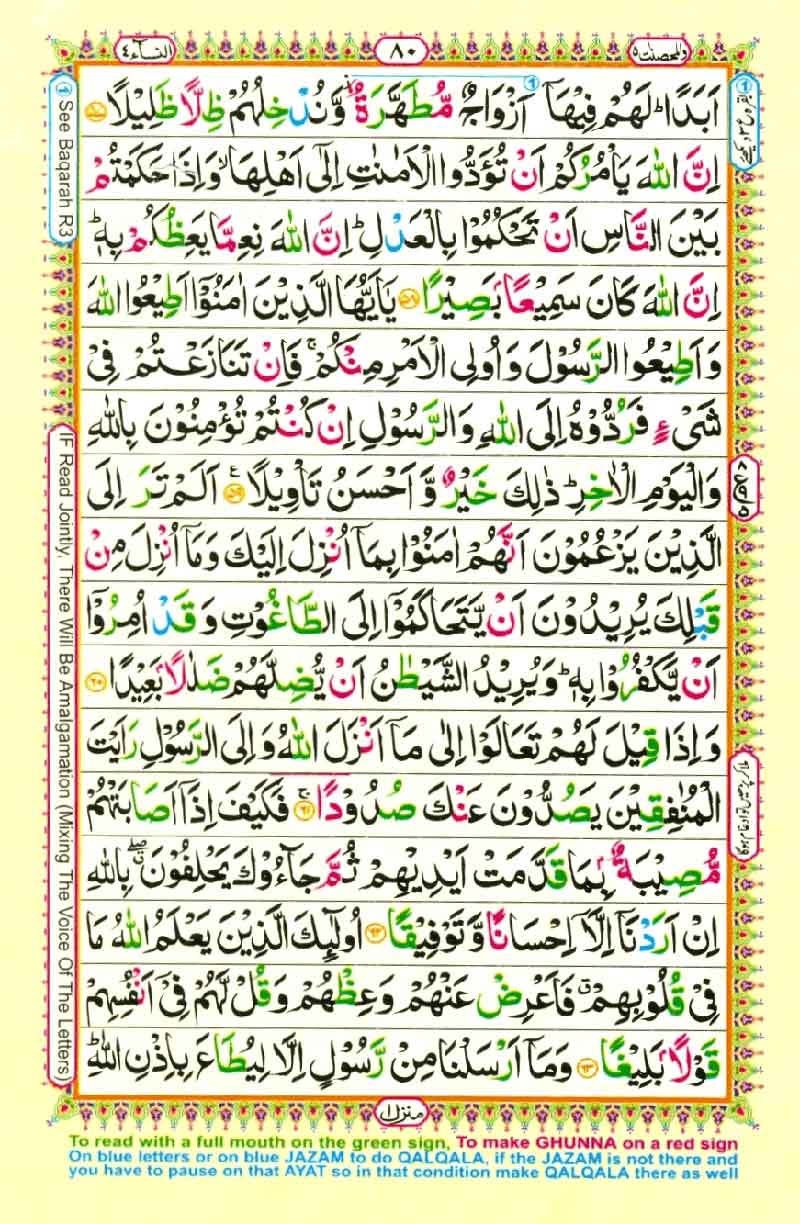 النسآء ٤
٨٠
والمحصنت ٥
اَبَدًا ؕ لَهُمْ فِيْهَاۤ اَزْوَاجٌ مُّطَهَّرَةٌ ۙ وَّنُدْخِلُهُمْ ظِلًّا ظَلِيْلًا ﴿۵۷﴾
اِنَّ اللّٰهَ يَاْمُرُكُمْ اَنْ تُؤَدُّوا الْاَمٰنٰتِ اِلٰۤى اَهْلِهَا ۙ وَاِذَا حَكَمْتُمْ
بَيْنَ النَّاسِ اَنْ تَحْكُمُوْا بِالْعَدْلِ ؕ اِنَّ اللّٰهَ نِعِمَّا يَعِظُكُمْ بِهٖ ؕ
اِنَّ اللّٰهَ كَانَ سَمِيْعًۢا بَصِيْرًا ﴿۵۸﴾ يٰۤاَيُّهَا الَّذِيْنَ اٰمَنُوْۤا اَطِيْعُوا اللّٰهَ
وَاَطِيْعُوا الرَّسُوْلَ وَاُولِى الْاَمْرِ مِنْكُمْ ۚ فَاِنْ تَنَازَعْتُمْ فِىْ
شَىْءٍ فَرُدُّوْهُ اِلَى اللّٰهِ وَالرَّسُوْلِ اِنْ كُنْتُمْ تُؤْمِنُوْنَ بِاللّٰهِ
وَالْيَوْمِ الْاٰخِرِ ؕ ذٰلِكَ خَيْرٌ وَّاَحْسَنُ تَاْوِيْلًا ﴿۵۹﴾ اَلَمْ تَرَ اِلَى
الَّذِيْنَ يَزْعُمُوْنَ اَنَّهُمْ اٰمَنُوْا بِمَاۤ اُنْزِلَ اِلَيْكَ وَمَاۤ اُنْزِلَ مِنْ
قَبْلِكَ يُرِيْدُوْنَ اَنْ يَّتَحَاكَمُوْۤا اِلَى الطَّاغُوْتِ وَقَدْ اُمِرُوْۤا
اَنْ يَّكْفُرُوْا بِهٖ ؕ وَيُرِيْدُ الشَّيْطٰنُ اَنْ يُّضِلَّهُمْ ضَلٰلًۢا بَعِيْدًا ﴿۶۰﴾
وَاِذَا قِيْلَ لَهُمْ تَعَالَوْا اِلٰى مَاۤ اَنْزَلَ اللّٰهُ وَاِلَى الرَّسُوْلِ رَاَيْتَ
الْمُنٰفِقِيْنَ يَصُدُّوْنَ عَنْكَ صُدُوْدًا ﴿۶۱﴾ فَكَيْفَ اِذَاۤ اَصَابَتْهُمْ
مُّصِيْبَةٌۢ بِمَا قَدَّمَتْ اَيْدِيْهِمْ ثُمَّ جَآءُوْكَ يَحْلِفُوْنَ ۖ بِاللّٰهِ
اِنْ اَرَدْنَاۤ اِلَّاۤ اِحْسَانًا وَّتَوْفِيْقًا ﴿۶۲﴾ اُولٰٓئِكَ الَّذِيْنَ يَعْلَمُ اللّٰهُ مَا
فِىْ قُلُوْبِهِمْ ۗ فَاَعْرِضْ عَنْهُمْ وَعِظْهُمْ وَقُلْ لَّهُمْ فِىْۤ اَنْفُسِهِمْ
قَوْلًۢا بَلِيْغًا ﴿۶۳﴾ وَمَاۤ اَرْسَلْنَا مِنْ رَّسُوْلٍ اِلَّا لِيُطَاعَ بِاِذْنِ اللّٰهِ ؕ
منزل ١
See Baqarah R3
IF Read Jointly, There Will Be Amalgamation (Mixing The Voice Of The Letters)
To read with a full mouth on the green sign, To make GHUNNA on a red sign
On blue letters or on blue JAZAM to do QALQALA, if the JAZAM is not there and
you have to pause on that AYAT so in that condition make QALQALA there as well